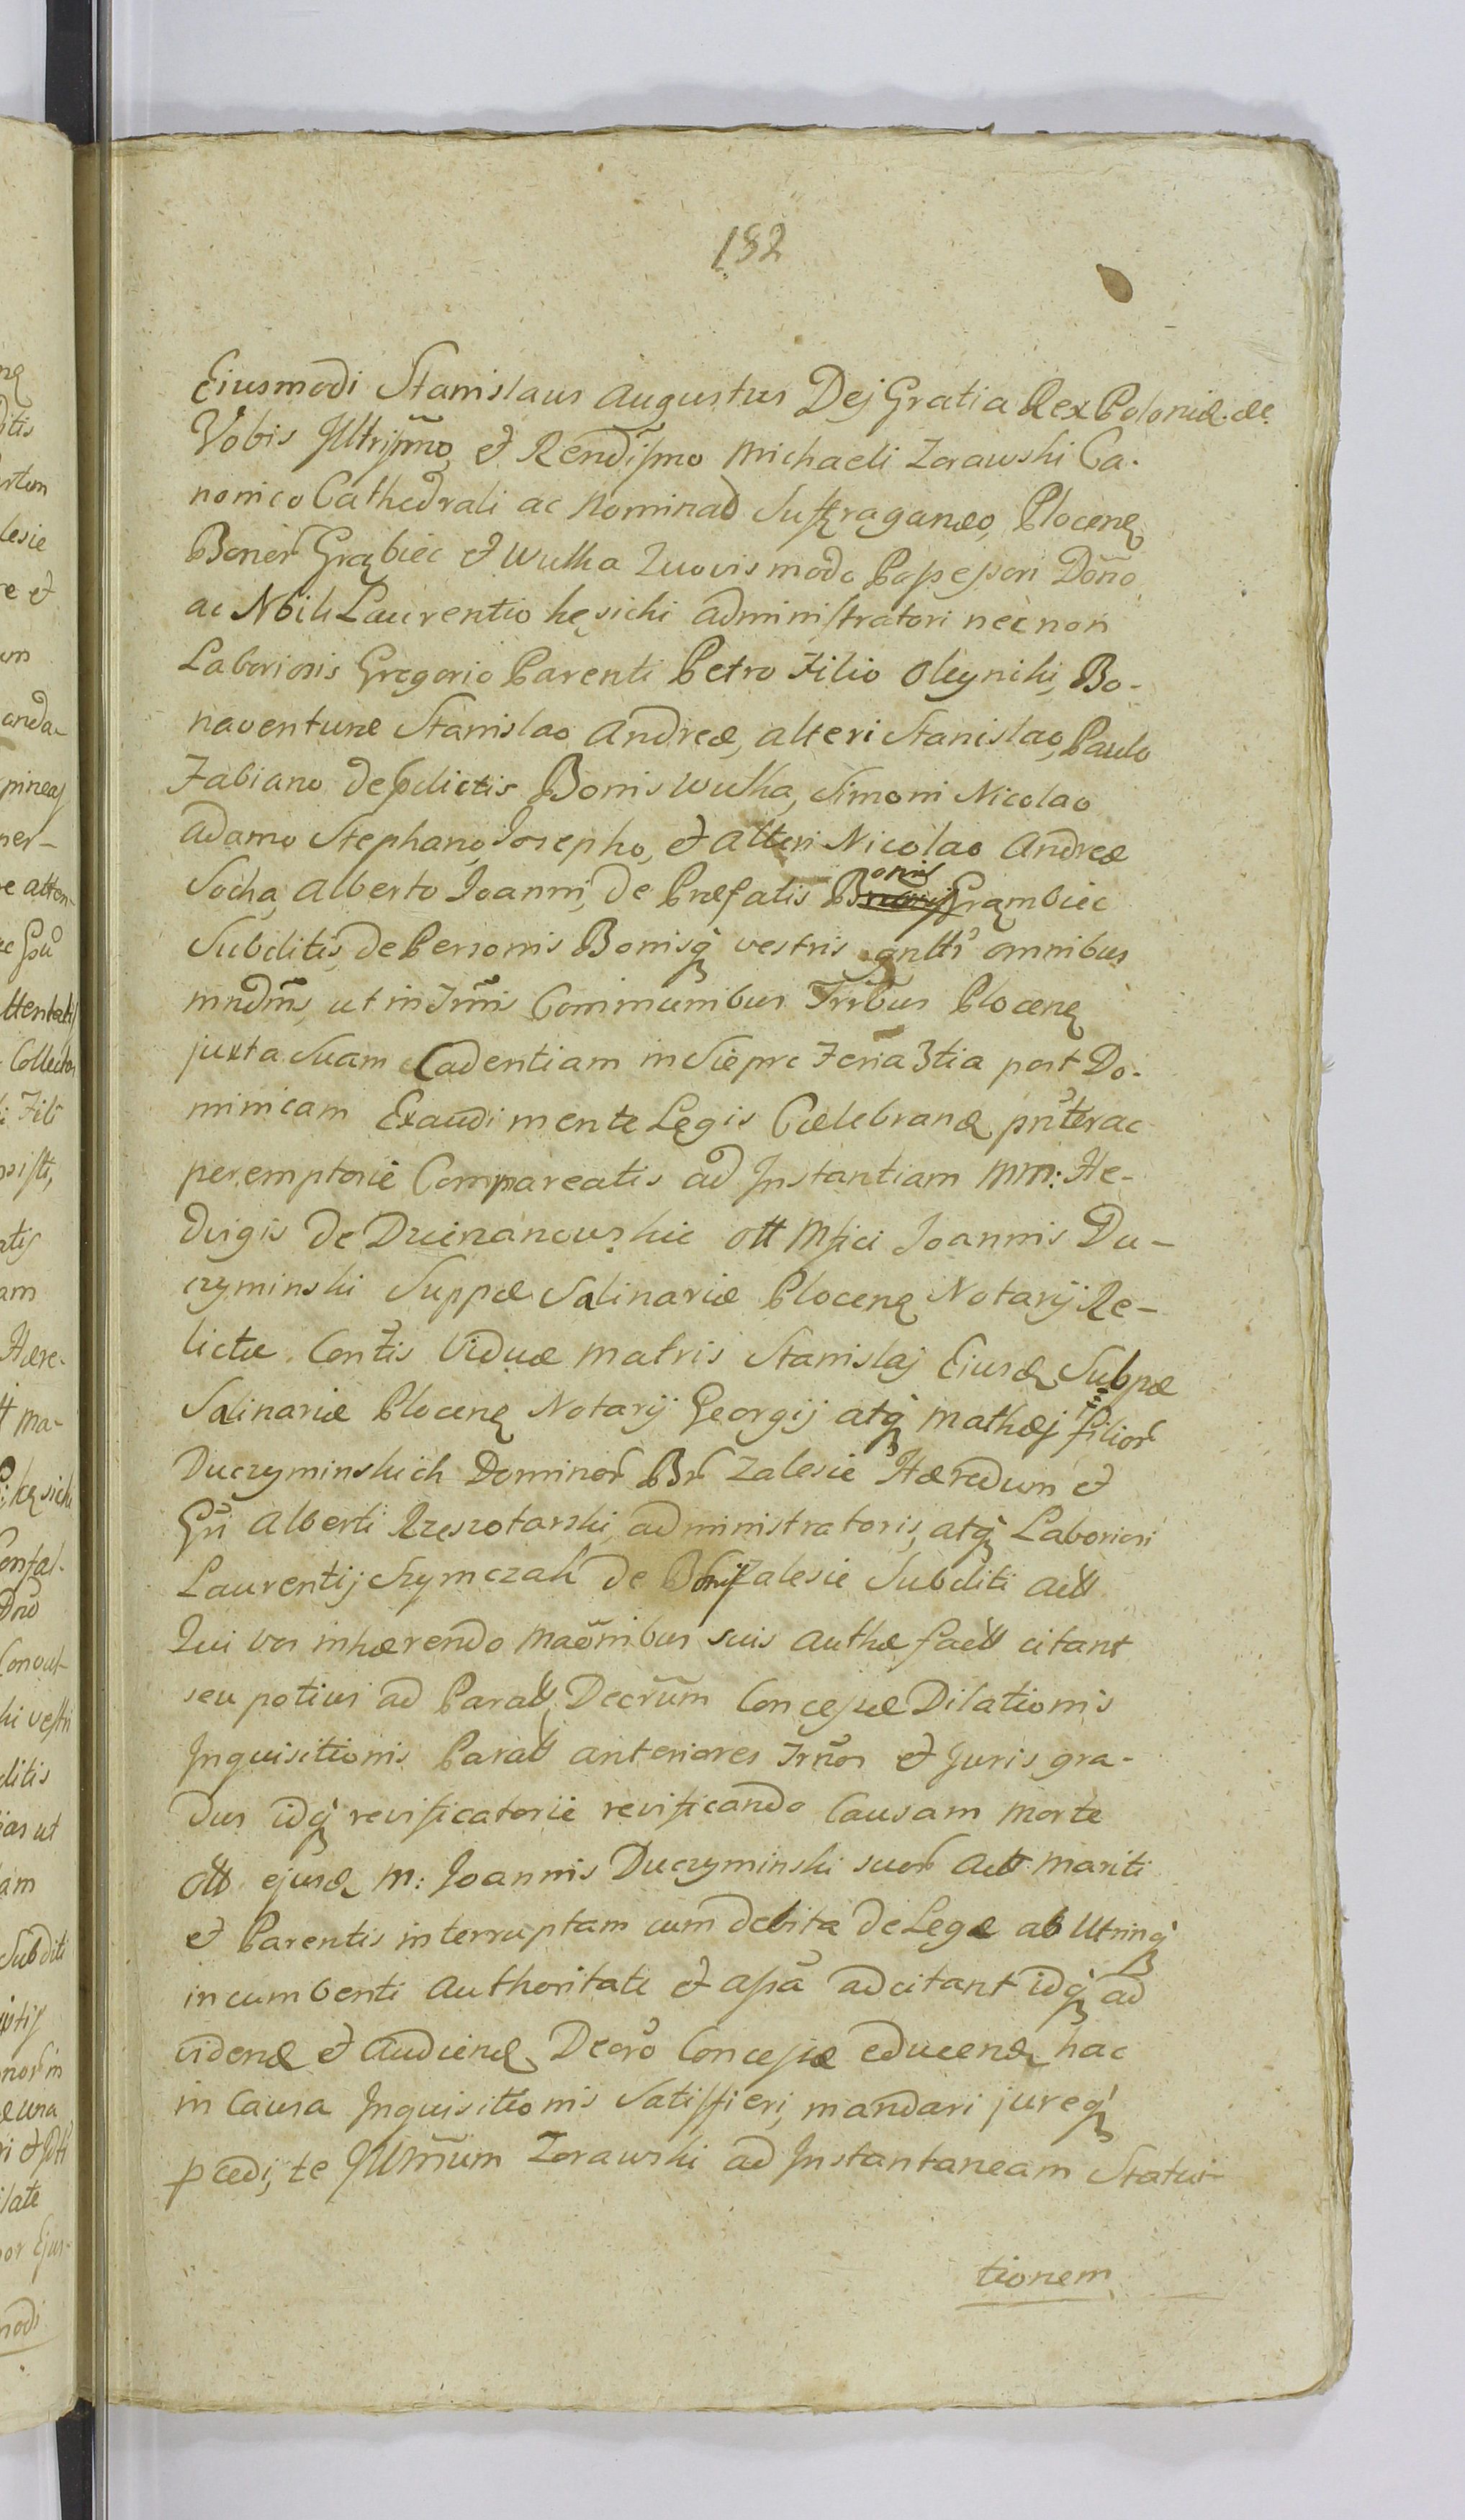 182
Eiusmodi Stanislaus Augustus Dej Gratia Rex Poloniæ. &c.
Vobis Illtrissmo, et Rendissmo Michaeli Zorawski Ca-
nonico Cathedrali ac Nominad Suffraganeo, Plocen
Bonor Grąbiec et Wulka Quovis modo Possessori Dōno
ac Nbili Laurentio Kęsicki administratori nec non
Laboriosis Gregorio Parenti Petro Filio Oleyniki, Bo-
naventuræ Stanislao Andreæ, alteri Stanislao, Paulo
Fabiano de pdictis Bonis Wulka, Simoni Nicolao
Adamo Stephano, Josepho, et alteri Nicolao Andreæ
Socha, Alberto Joanni, de Præfatis Bonis Grambiec
Subditis, de Personis Bonisq vestris gnlttr omnibus
mndms, ut in Trmis Communibus Trrībus Plocen
juxta Suam Cadentiam in Sieprc Feria 3tia post Do-
minicam Exaudi mente Legis Cælebran pntter ac
peremptorie Compareatis ad Instantiam MM: He-
dvigis de Dzcinanowskie ott Mfici Joannis Du-
czyminski Suppæ Salinariæ Plocen Notarij Re-
lictæ Contis Viduæ Matris Stanislaj Eiusd Subpæ
Salinariæ Plocen Notarij Georgij atq Mathæj filior
Duczyminskich Dominor Br Zalesie Hæredum et
Gni Alberti Rzeszotarski, administratoris, atq Laboriosi
Laurentij Szymczak de Bonis Zalesie Subditi Actt
Qui vos inhærendo Maōnibus suis Authæ factt citant
seu potius ad Paratt Decrūm Concessæ Dilationis
Inquisitionis Paratt anteriores Trnos et Juris gra-
dus idq revificatorie revificando Causam morte
ott ejusd M: Joannis Duczyminski suor Actt Mariti
et Parentis interruptam cum debita de Lege ab Utrinq
incumbenti Authoritate et assā adcitant idq ad
viden et audien Decro Concessæ educen hac
in Causa Inquisitionis Satisfieri, mandari jureq
pcedi, te Illmūm Zorawski ad Instantaneam Statui-
tionem